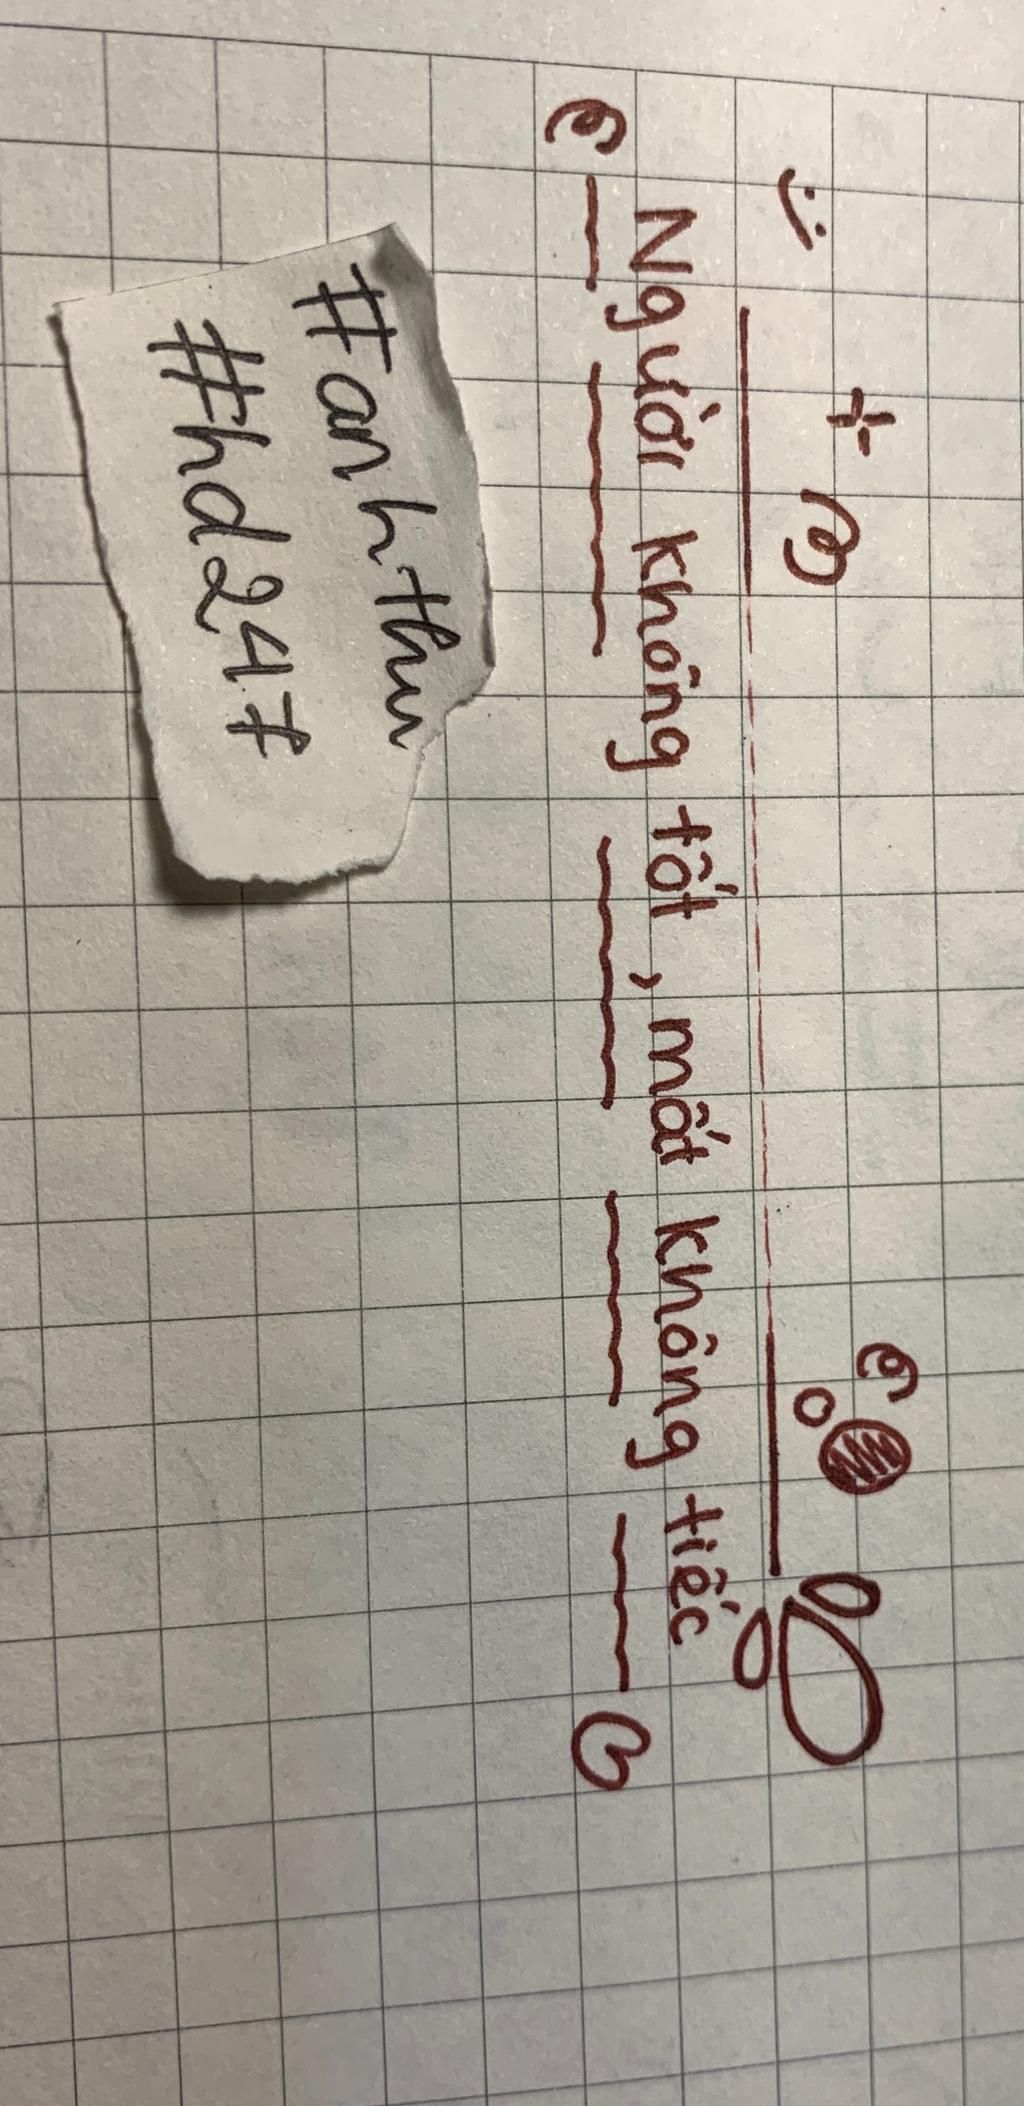 Người không tốt, mất không tiếc
#anhthu
#hd247